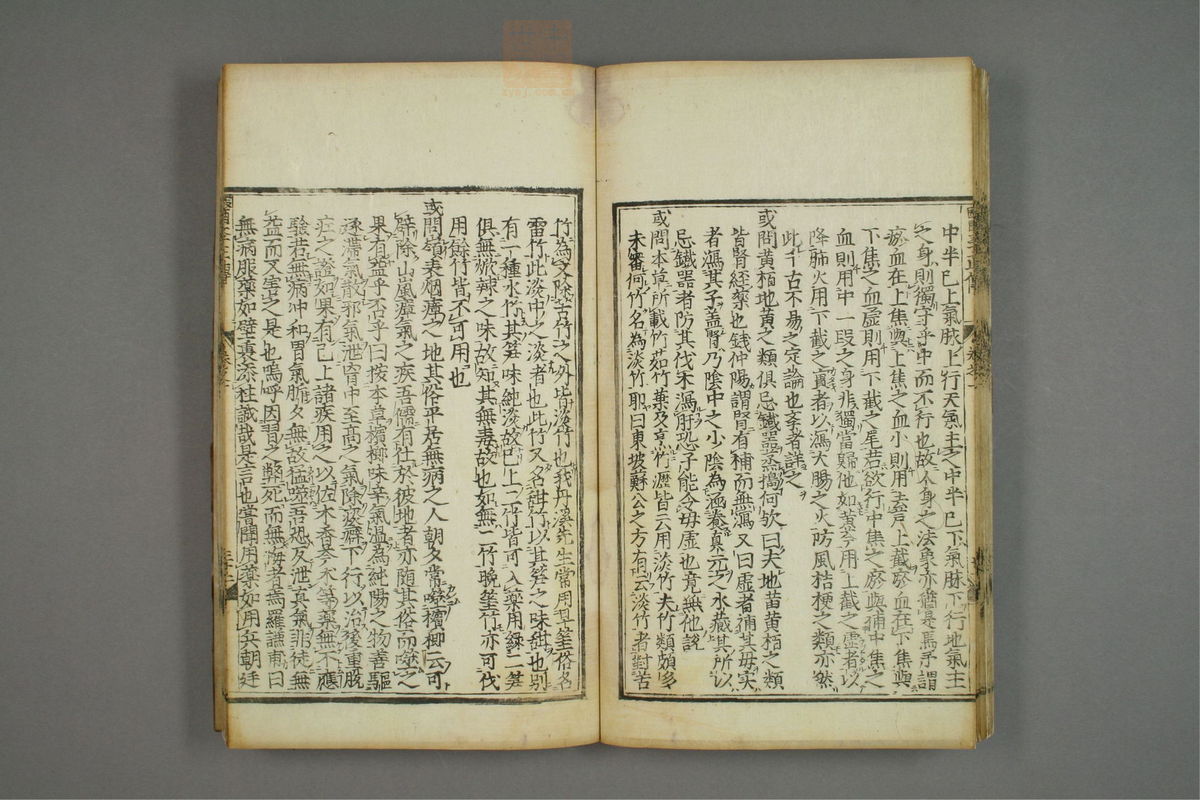 中半已上氣脉上行天氣主之中半已下氣脉下行地氣主
之身則獨守乎中而不行也故人身之法象亦猶是焉予謂
瘀血在上焦與上焦之血小則用盖戸上截瘀血在下焦與
下焦之血虚則用下截之尾若欲行中焦之瘀與補中焦之
血則用中一段之身非獨當歸他如黄芩用上截之虚者以
降肺火用下截之實者以瀉大腸之火防風桔梗之類亦然
此千古不易之定論也李者詳之
或問黄栢地黄之類俱忌鐵器蒸搗何欤曰夫地黄黄栢之類
皆腎経藥也錢仲陽謂腎有補而無瀉又曰虚者補其母實
者瀉其子盖腎乃陰中之少陰為涵養真元之水藏其所以
忌鐵器者防其伐木瀉肝恐子能令母虚也竟無他説
或問本草所載竹茹竹葉及烹竹瀝皆云用淡竹夫竹類頗多
未審何竹名為淡竹耶曰東坡蘇公之方有云淡竹者對苦
竹為文除苦竹之外皆淡竹也我丹溪先生常用早筀俗名
雷竹此淡中之淡者也此竹又名甜竹以其笋之味甜也别
有一種水竹其笋味純淡故已上二竹皆可入藥用蘇二笋
俱無㾕辣之味故知其無毒故也如無二竹晩筀竹亦可伐
用餘竹皆不可用也
或問嶺表烟瘴之地其俗平居無病之人朝夕常噬檳榔云可
辟除山嵐瘴氣之疾吾儒有仕於彼地者亦随其俗而噬之
果有益乎否乎曰按本草檳榔味辛氣温為純陽之物善驅
逐滯氣散邪氣泄胷中至高之氣除痰癖下行以治後重脱
疘之證如果有已上諸疾用之以佐木香芩朮等藥無不應
驗若無病冲和胃氣脈夕無故猛噬吾恐反泄真氣非徒無
益而又害之是也嗚呼因習之弊死而無悔者焉羅謙甫曰
無病服藥如壁裏添柱誠哉是言也嘗聞用藥如用兵朝廷